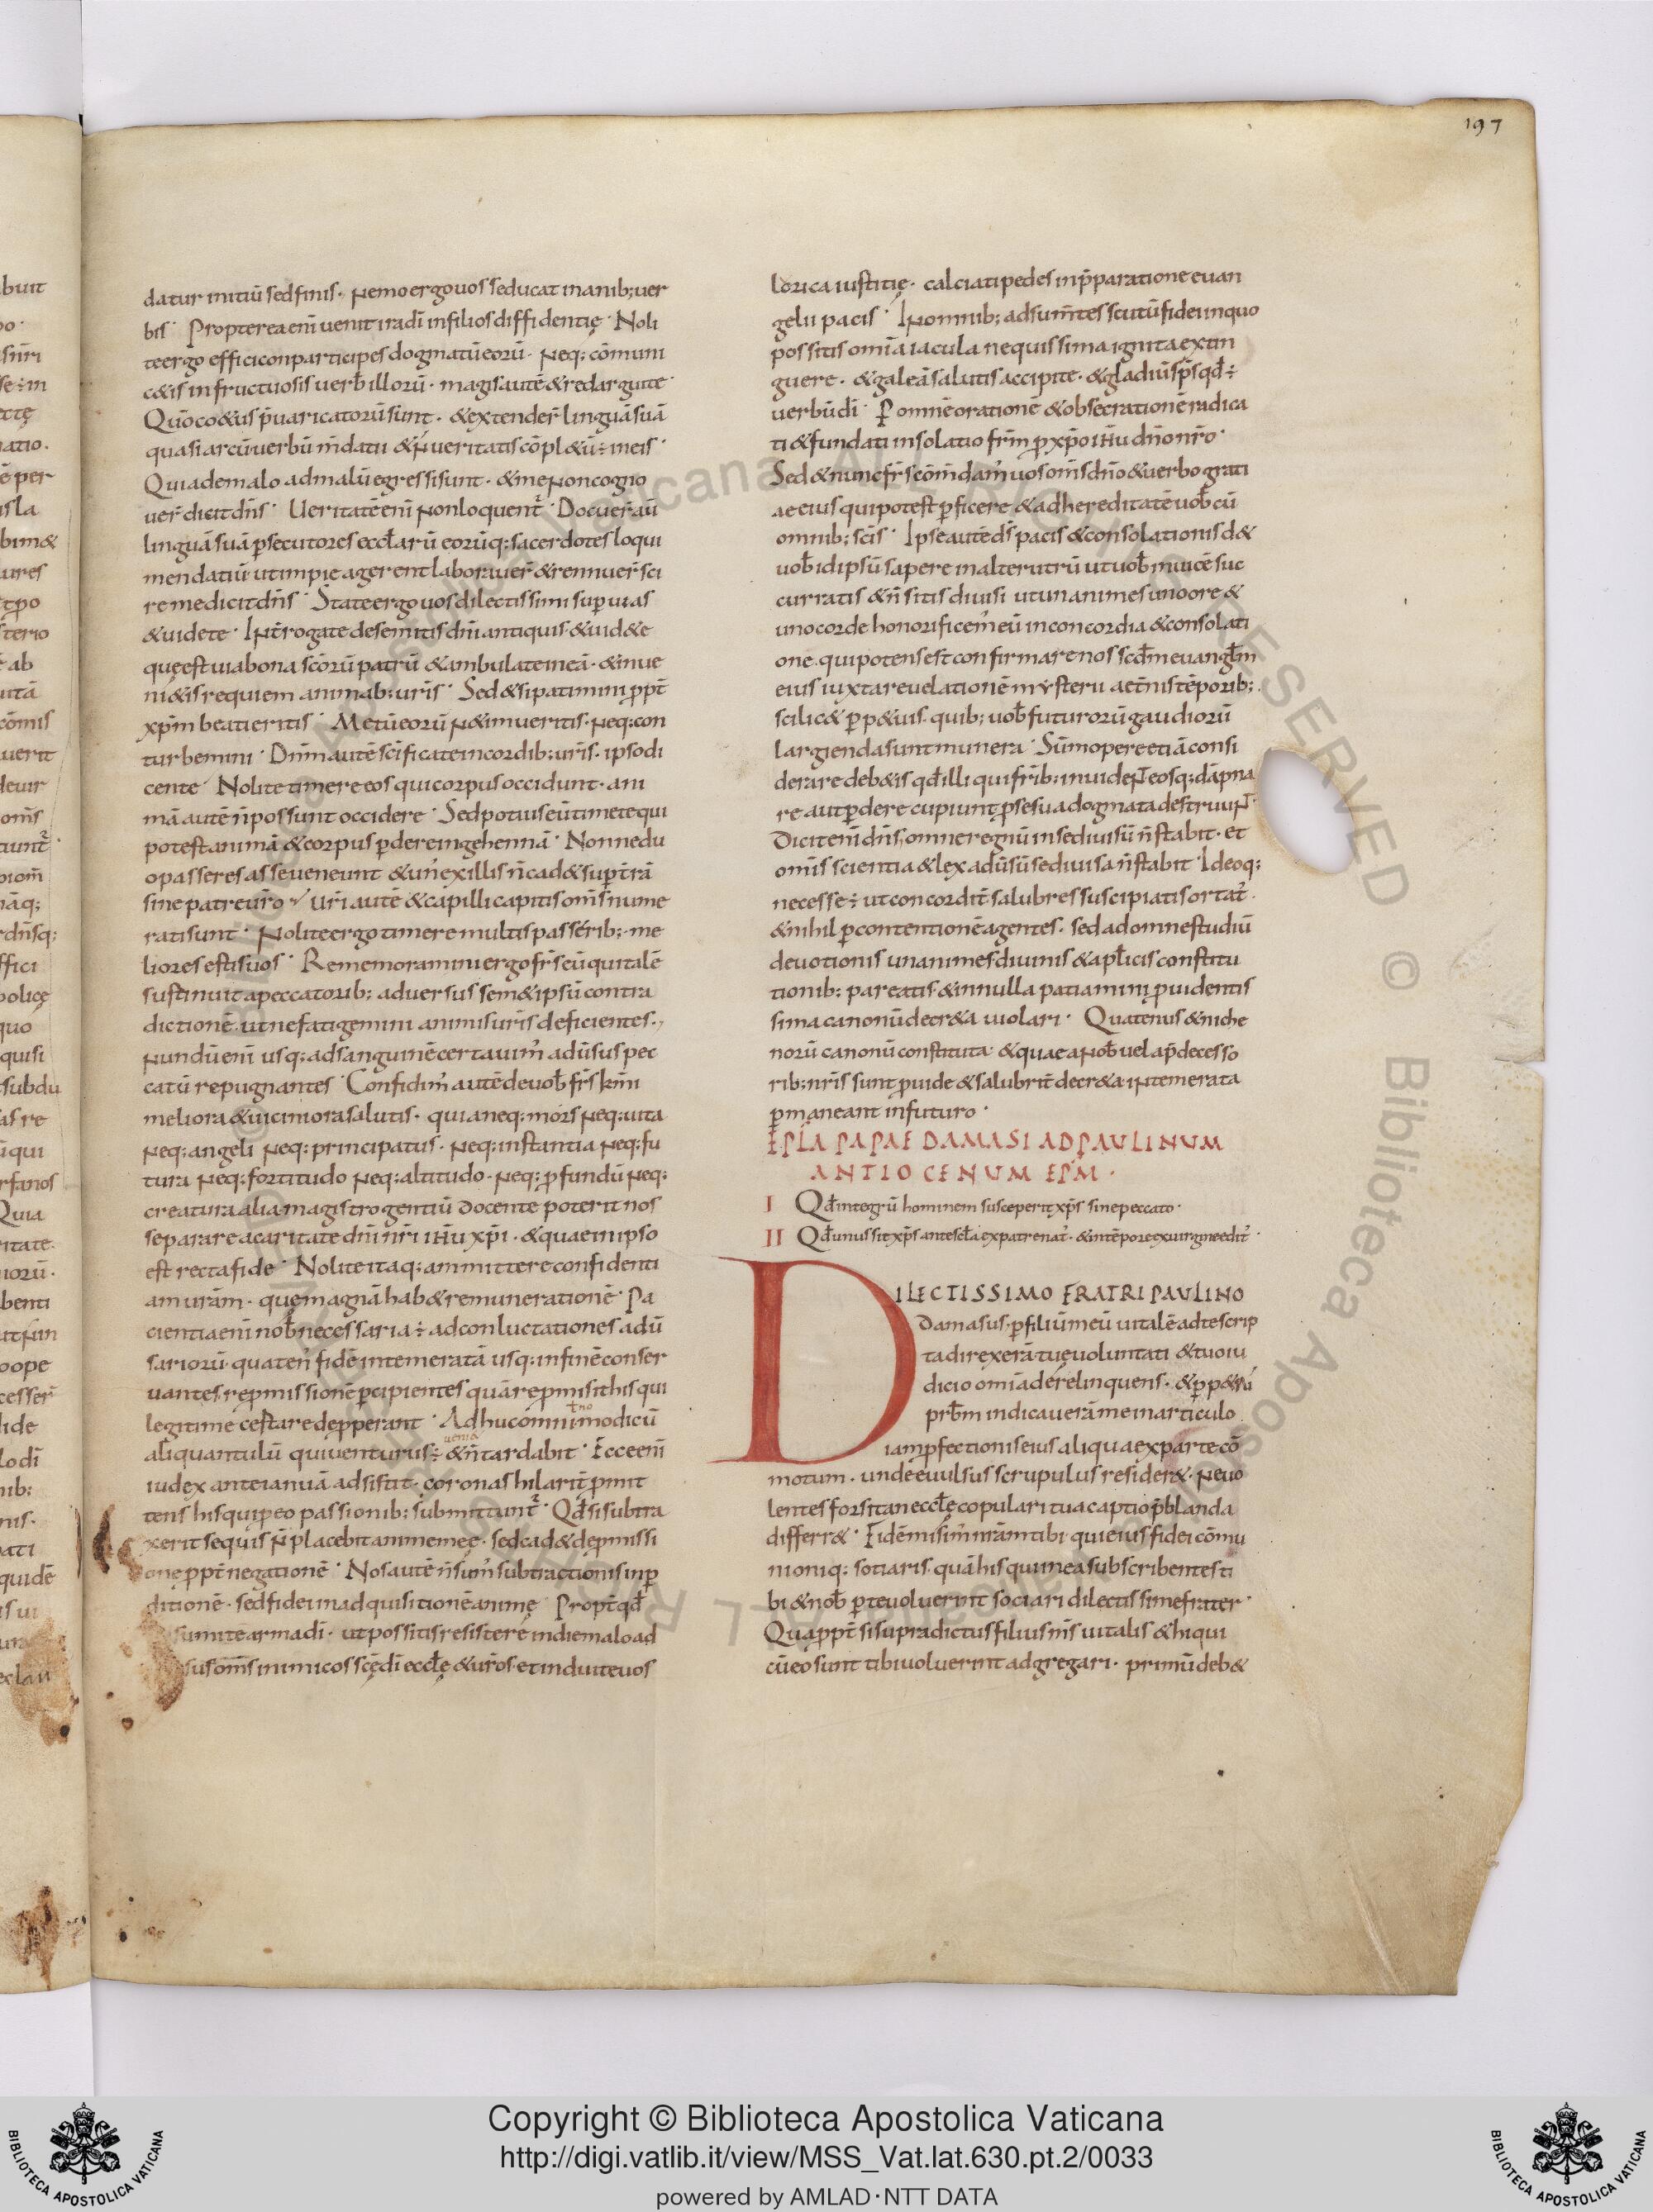 197
buit
sñri
se÷in
ctę
natio.
ē per
isla
bim&
ures
tꝓo
sterio
ē ab
uitā
cōmis
uerit
deuir
om̄s
tiunt᷑
piom̄
dn̄sq;
ffici
polięe
quo
quisi
subdu
as re
ūqui
rfanos
Quia
ritate.
benti
oope
cesser̄
lide
lodī
nib;
nis.
ati
quidē
datur initiū sed finis. Nemo ergo uos seducat inanib; uer
bis. Propterea enī uenit ira dī in filios diffidentię. Noli
te ergo effici conparticipes dogmatū eorū. Neq; cōmuni
c&is infructuosis uerƀ illorū. magis autē & redarguite.
Qūo co&us p̄uaricatorū sunt. & extender̄ linguā suā
quasi arcū uerbū m̄datii & n̄ ueritatis cōpl&ū ÷ in eis.
Quia de malo ad malū egressi sunt. & me non cogno
uer̄ dicit dn̄s. Ueritatē enī non loquent᷑. Docuer̄ aū
linguā suā ꝑsecutores eccl̄arū eorūq; sacerdotes loqui
mendatiū ut impie agerent laborauer̄ & rennuer̄ sci
re me dicit dn̄s. State ergo uos dilectissimi suꝑ uias
& uidete. Int̄rogate de semitis dn̄i antiquis & uid&e
quę est uia bona sc̄orū patrū & ambulate in eā. & inue
ni&is requiem animab; uris̄. Sed & si patimini ꝓpt̄
xp̄m beati eritis. Metū eorū n& imueritis. Neq; con
turbemini. Dn̄m autē sc̄ificate in cordib; uris̄. ipso di
cente. Nolite timere eos qui corpus occidunt. ani
mā autē n̄ possunt occidere. Sed potius eū timete qui
potest animā & corpus ꝑdere in gehennā. Nonne du
o passeres asse ueneunt & un̄ ex illis n̄ cad& suꝑ t̄rā
sine patre uro̅. Uri̅ autē & capilli capitis om̄s nume
rati sunt. Nolite ergo timere multis passerib; me
liores estis uos. Rememoramini ergo fr̄s eū qui talē
sustinuit a peccatorib; aduersus sem&ipsū contra
dictionē. ut ne fatigemini animis uris̄ deficientes.
Nundū enī usq; ad sanguinē certauim᷒ adūsus pec
catū repugnantes. Confidim᷒ autē de uoƀ fr̄s km̄i
meliora & uiciniora salutis. quia neq; mors neq; uita
neq; angeli neq; principatus. neq; instantia neq; fu
tura neq; fortitudo neq; altitudo. neq; ꝓfundū neq;
creatura alia magistro gentiū docente poterit nos
separare a caritate dn̄i nr̄i ih̄u xp̄i. & quae in ipso
est recta fide. Nolite itaq; ammittere confidenti
am urā̄m. quę magnā hab& remunerationē. Pa
cientia enī noƀ necessaria ÷ ad conluctationes adū
sariorū. quaten᷒ fidē intemeratā usq; in finē conser
uantes. repmissionē ꝑcipientes quā repmisit his qui
legitime certare depperant. Adhuc omnimodicū
aliquantulū qui uenturus ÷ & n̄ tardabit. Ecce enī
iudex ante ianuā adsistit. coronas hilarit̄ ꝓmit
tens his qui ꝓ eo passionib; submittunt᷑. Qđ si subtra
xerit se quis n̄ placebit animę meę. sed cad& de ꝓmissi
one ꝓpt̄ negationē. Nos autē n̄ sum᷒ subtractionis in ꝑ
ditionē. sed fidei in adquisitionē animę. Propt̄ qđ
sumite arma dī. ut possitis resistere in die malo ad
sus om̄s inimicos sc̄ę dī eccl̄ę & uros̄. et induite uos
lorica iustitię. calciati pedes in p̄paratione euan
gelii pacis. In omnib; adsum̄tes scutū fidei in quo
possitis om̄ia iacula nequissima ignita extin
guere. & galeā salutis accipite. & gladiū sp̄s qđ ÷
uerbū dī. Ꝑ omnē orationē & obsecrationē radica
ti & fundati in solatio fr̄m ꝓ xp̄o ih̄u dn̄o nr̄o.
Sed & nunc fr̄s cōm̄dam᷒ uos om̄s dn̄o & uerbo grati
ae eius qui potest ꝑficere & ad hereditatē uoƀ cū
omnib; sc̄is. Ipse autē ds̄ pacis & consolationis d&
uoƀ id ipsū sapere in alterutrū ut uoƀ inuicē suc
curratis & n̄ sitis diuisi ut unanimes uno ore &
uno corde honorificem᷒ eū in concordia & consolati
one. qui potens est confirmare nos scđm euangl̄m
eius iuxta reuelationē mysterii aet̄nis tēporib;
scilic& ꝑp&uis. quib; uoƀ futurorū gaudiorū
largienda sunt munera. Sūmopere etiā consi
derare deb&is qđ illi qui fr̄ib; inuident eosq; dāpna
re aut ꝑdere cupiunt ꝑ se sua dogmata destruunt.
Dicit enī dn̄s, omne regnū in se diuisū n̄ stabit. et
omis̄ scientia & lex adūsū se diuisa n̄ stabit. Ideoq;
necesse ÷ ut concordit̄ salubres suscipiatis ortat᷒.
& nihil ꝑ contentionē agentes. sed ad omne studiū
deuotionis unanimes diuinis & apl̄icis constitu
tionib; pareatis. & in nulla patiamini ꝓuidentis
sima canonū decr&a uiolari. Quatenus & niche
norū canonū constituta. & quae a noƀ uel a p̄decesso
rib; nris̄ sunt ꝓuide & salubrit̄ decr&a intemerata
ꝑmaneant in futuro.
EPL̄A PAPAE DAMASI AD PAULINUM
ANTIOCENUM EPM̄.
I Qđ integrū hominem susceperit xp̄s sine peccato.
II Qđ unus sit xp̄s ante scl̄a ex patre nat᷒. & in tēpore ex uirgine edit᷒.
DILECTISSIMO FRATRI PAULINO
Damasus. ꝑ filiū meū uitalē ad te scrip
ta direxerā tuę uoluntati & tuo iu
dicio om̄ia derelinquens. & ꝑ p&rū
prb̄m indicauerā me in articulo
iam ꝓfectionis eius aliqua ex parte cō
motum. unde euulsus scrupulus resider&. Neuo
lentes forsitan eccl̄ę copulari tua captio p̄blanda
differr&. Fidē misim᷒ nrā̄m tibi. qui eius fidei cōmu
nioniq; sotiaris. quā his qui in ea subscribentes ti
bi & noƀ ꝑ te uoluerint sociari dilectissime frater.
Quaꝓpt̄ si supradictus filius m̄s uitalis & hi qui
cū eo sunt tibi uoluerint adgregari. primū deb&
Copyright © Biblioteca Apostolica Vaticana
http://digi.vatlib.it/view/MSS_Vat.lat.630.pt.2/0033
powered by AMLAD·NTT DATA
BIBLIOTECA APOSTOLICA VATICANA
BIBLIOTECA APOSTOLICA VATICANA